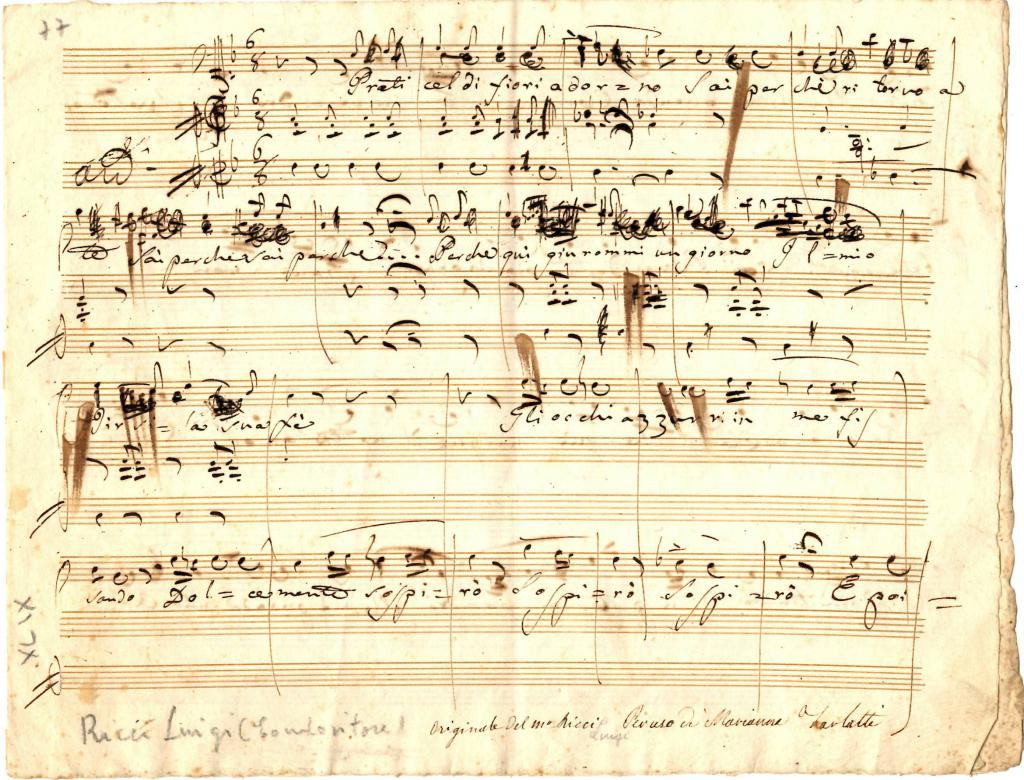 77
Praticel di fiori ador=no Sai perchè ritorno a
And.
te Sai perche sai perche... Perche qui giurommi un giorno Il=mio
la sua fè Gli occhi azzurri in me fis
sando Dol=cemente sospi=rò Sospi=rò sospi=rò E poi=
XLIX
Ricci Luigi (
Originale Del mo Ricci di Marianna
Luigi